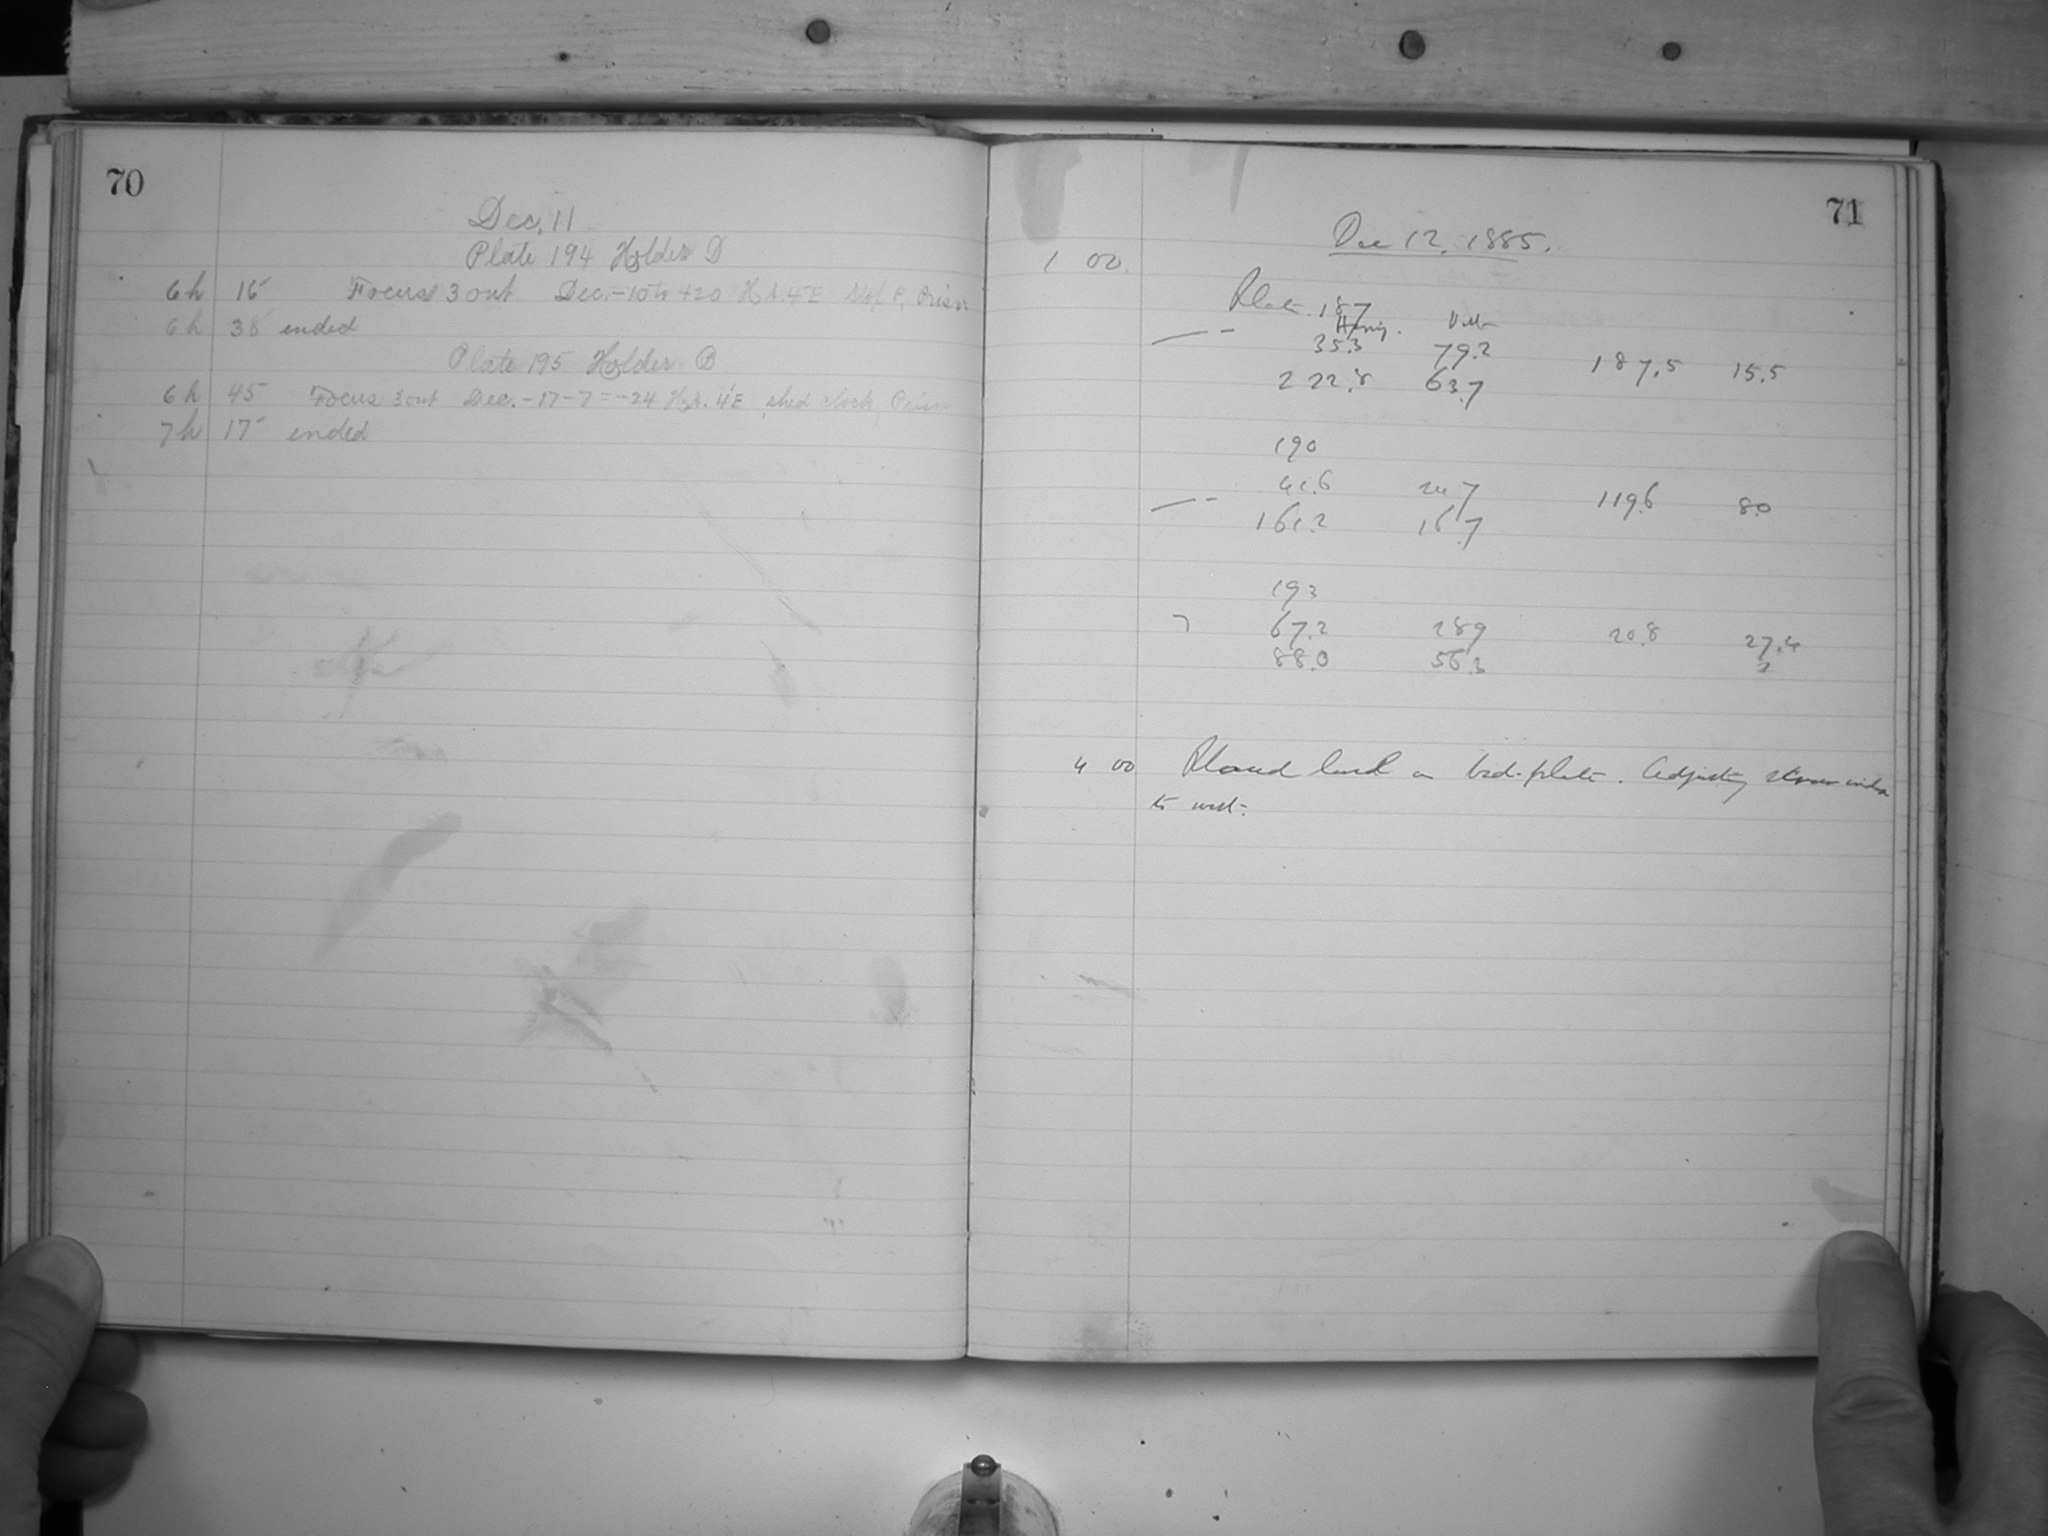 70
Dec. 11
Plate 194 Holder D
6h 15 Focus 3 out Dec. -10 to +20 H.A. 4E Stop P, Prism
6h 38 ended
Plate 195 Holder B
6h 45 Focus 3 out Dec. -17-7=-24 H.A. 4E shed clock, Prism
7h 17 ended
71
Dec 12, 1885.
1 00.
Plate 187
35.3 79.2
222.8 63.7 187.5 15.5
190
41.6 24.7
161.2 16.7 119.6 8.0
193
67.2 28.9 20.8 27.4
88.0 56.3
4 00 Placed level on bed-plate. Adjusting screw
to west.